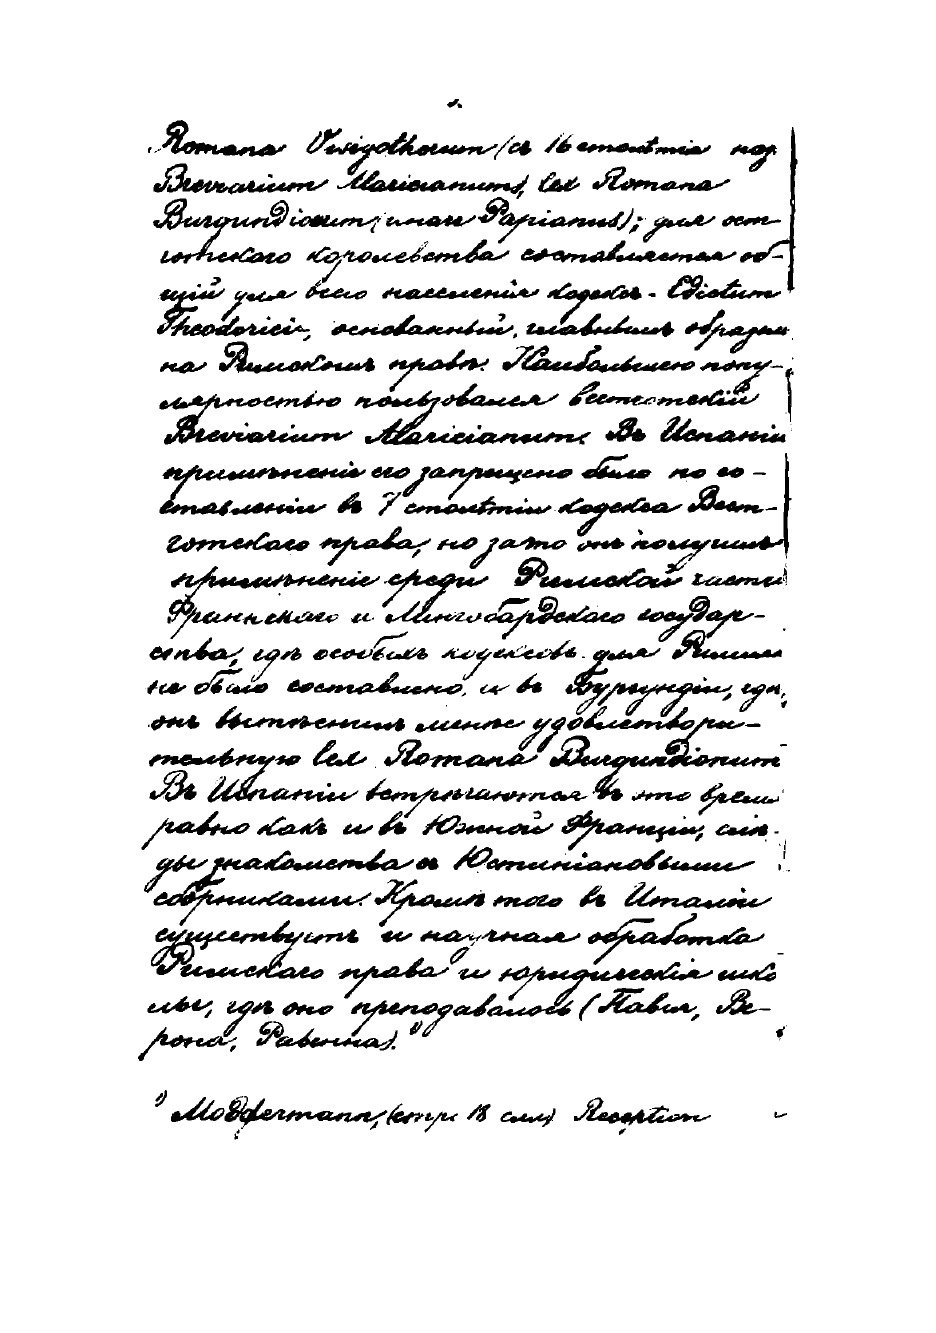 Romana Visigothorum (съ 16 столѣтія наз.
Breviarium Alaricianum), lex Romana
Burgundiorum (иначе Papianus); для ост-
готскаго королевства составляется об-
щій для всего населенія кодексъ - Edictum
Theodorici, основанный, главнымъ образомъ
на Римскомъ правѣ. Наибольшею попу-
лярностью пользовался вестготскій
Breviarium Alaricianum. Въ Испаніи
примѣненіе его запрещено было по со-
ставленіи въ 7 столѣтіи кодекса Вест-
готскаго права, но за то онъ получилъ
примѣненіе среди Римской части
Франкскаго и Лангобардскаго государ-
ства, гдѣ особыхъ кодексовъ для Римлянъ
не было составлено, и въ Бургундіи, гдѣ
онъ вытѣснилъ менѣе удовлетвори-
тельную lex Romana Burgundionum
Въ Испаніи встрѣчаются въ это время
равно какъ и въ Южной Франціи, слѣ-
ды знакомства съ Юстиніановыми
сборниками. Кромѣ того въ Италіи
существуетъ и научная обработка
Римскаго права и юридическія шко
лы, гдѣ оно преподавалось (Павія, Ве-
рона, Равенна).¹)
¹) Moddermann, (стр. 18 слл) Reception